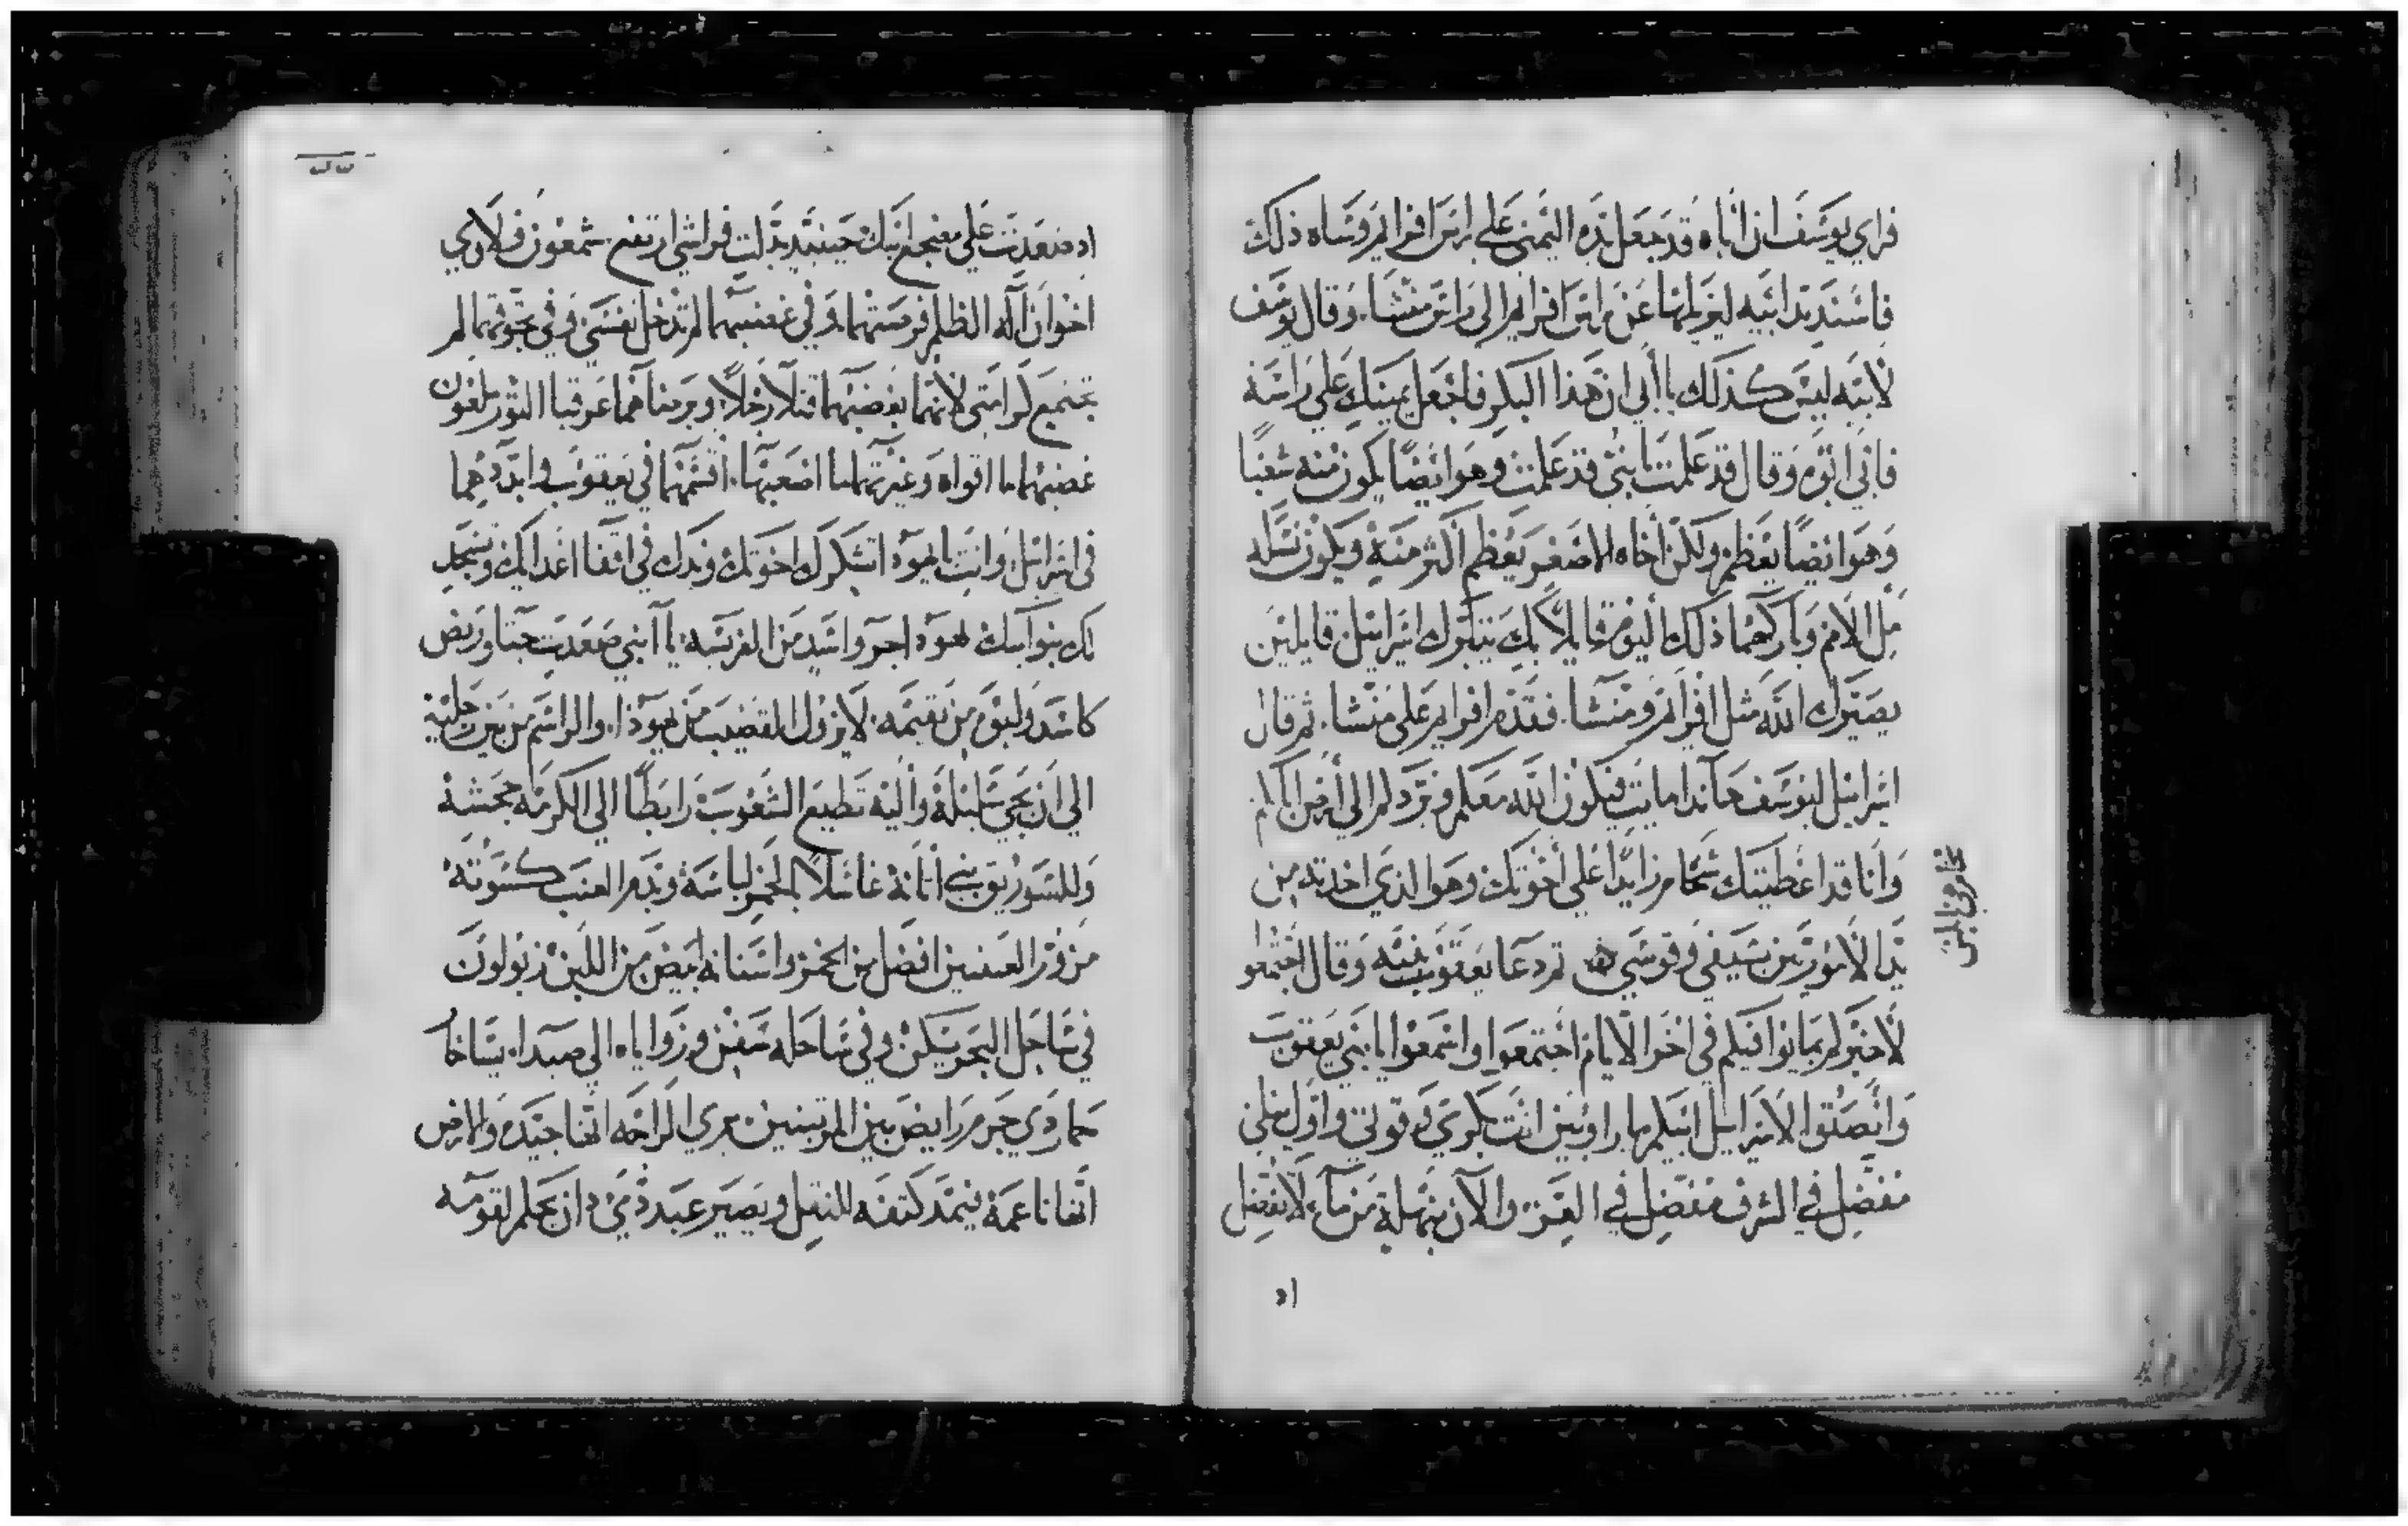 فراي يوسف ان اباه قد جعل يده اليمنى على راس افرايم وساه ذلك
فاسند يد ابيه ليزيلها عن راس افرايم الى راس منشا. وقال يوسف
لابيه ليس كذلك يا ابي ان هذا البكر فاجعل يمينك على راسه
فابى ابوه وقال قد علمت يا بني قد علمت وهو ايضًا يكون منه شعبًا
وهو ايضًا يعظم ولكن اخاه الاصغر يعظم اكثر منه ويكون نسله
مل الامم وباركهما ذلك اليوم قايلاً بك يتبرك اسراييل قايلين
يصيرك الله مثل افرايم ومنشا. فقدم افرايم على منشا. ثم قال
اسراييل ليوسف هاندا مايت فيكون الله معكم ويردكم الى ارض ابايكم
وانا قد اعطيتك سهما زايدًا على اخوتك وهو الذي اخدته من
يد الاموريين بسيفي وقوسي ثم دعا يعقوب بنيه وقال اجتمعو
لاخبركم بما يوافيكم في اخر الايام اجتمعوا واسمعوا يا بني يعقوب
وانصتوا لاسراييل ابيكم يا راوبين انت بكري وقوتي واول نيلي
مفضل في الشرف مفضل في العز والان بتهلة من ماء لا تفضل
اد
اد صعدت على مضجع ابيك حينيد بدلت فراشي ارتفع شمعون ولاوي
اخوان اله الظلم فرصتهما وفي غضبهما لم تدخل نفسي وفي جوقهما لم
تجتمع كرامتي لانهما بغضبهما قتلا رجلاً وبرضاهما عرقبا الثور ملعون
غضبهما ما اقواه وغيرتهما ما اصعبها. اقسمهما في يعقوب وابددهما
في اسراييل وانت ايهوده اتشكرك اخوتك ويدك في اقفا اعدايك وتسجد
لك بنو ابيك يهوده اجر واسد من الفريسه يا ابني صعدت جتا وربض
كاسد ولبوه من يقيمه. لا يزول القضيب من يهوذا. والراسم من بين رجليه
الى ان يجي واليه تطيع الشعوب رابطًا الى الكرمه جحشه
وللسوريق بني اتانه غاسلاً بالخمر لباسه وبدم العنب كسوته
مزور العينين افضل من الخمر واسنانه ابيض من اللبن زبولون
في ساحل البحر يسكن وفي ساحله سفن وزواياه الى صيدا. يساخار
حمار دي جرم رابض بين المرتبتين يري الراحه انها جيده والارض
انها ناعمه فيمد كتفه للنقل ويصير عبد دان يحكم لقومه